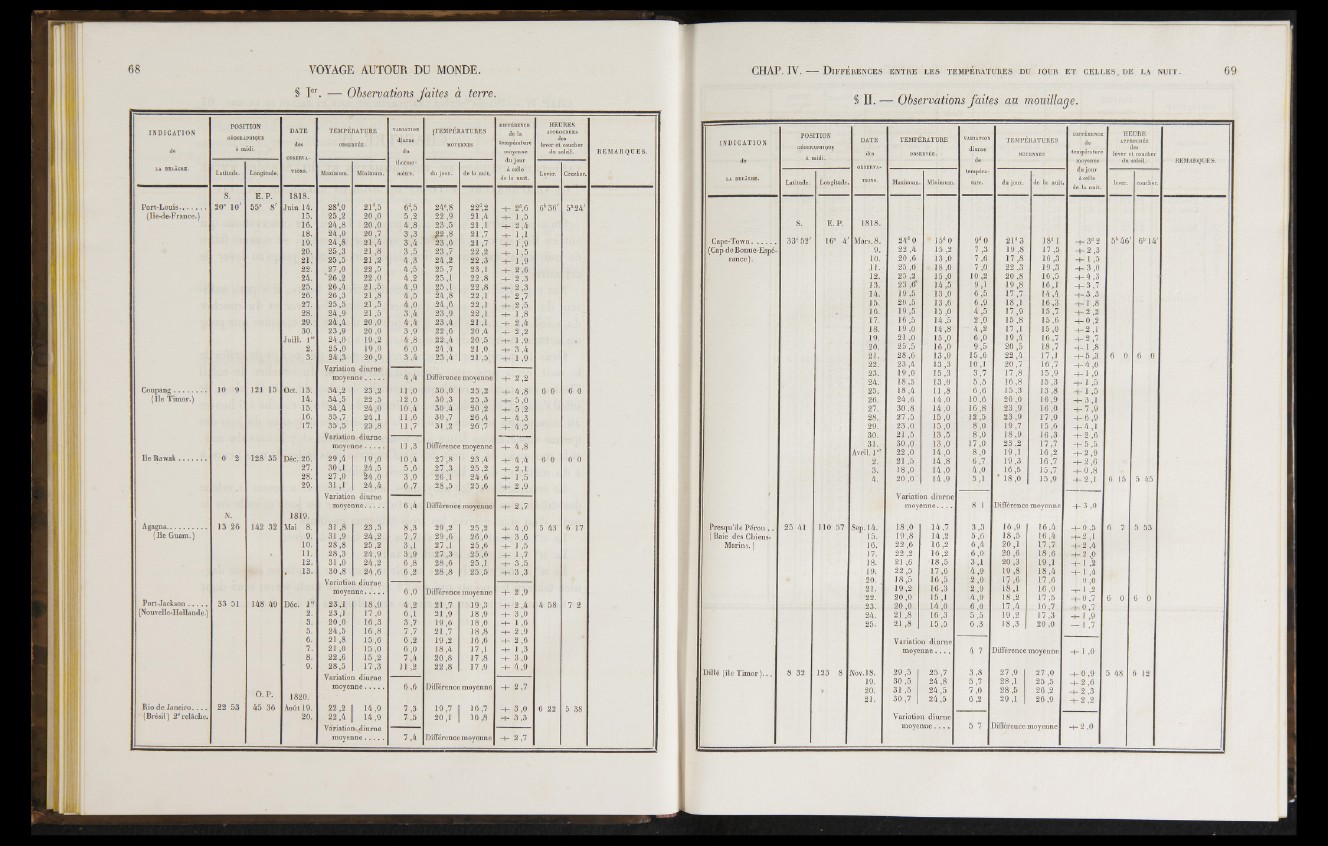 68 VOYAGE AUTOUR DU MONDE.
§ Ier. — Observations faites à terre.
INDICATION de LA RELÂCHE. | POSITION GÉOGRAPHIQUE à midi. Latitude. Longitude. | DATE des OBSERVATIONS. | TEMPÉRATURE OBSERVÉE. Maximum. Minimum. | VARIATION diurne du thermomètre. | TEMPÉRATURES MOYENNES du jour. de la nuit. | DIFFÉRENCE de la température moyenne du jour à celle de la nuit. | HEURES APPROCHÉES des lever et coucher du soleil. Lever. Coucher. | REMARQUES.
S. E. P. 1818.
Port-Louis....... 20° 10′ 55° 8′ Juin 14. 28°,0 21°,5 6°,5 24°,8 22°,2 + 2°,6 6h36′ 5h24′
(Ile-de-France.) 15. 25,2 20,0 5,2 22,9 21,4 + 1,5
16. 24,8 20,0 4,8 23,5 21,1 + 2,4
18. 24,0 20,7 3,3 22,8 21,7 + 1,1
19. 24,8 21,4 3,4 23,6 21,7 + 1,9
20. 25,3 21,8 3,5 23,7 22,2 + 1,5
21. 25,5 21,2 4,3 24,2 22,3 + 1,9
22. 27,0 22,5 4,5 25,7 23,1 + 2,6
24. 26,2 22,0 4,2 25,1 22,8 + 2,3
25. 26,4 21,5 4,9 25,1 22,8 + 2,3
26. 26,3 21,8 4,5 24,8 22,1 + 2,7
27. 25,5 21,5 4,0 24,6 22,1 + 2,5
28. 24,9 21,5 3,4 23,9 22,1 + 1,8
29. 24,4 20,0 4,4 23,4 21,1 + 2,4
30. 23,9 20,0 3,9 22,6 20,4 + 2,2
Juill. 1er 24,0 19,2 4,8 22,4 20,5 + 1,9
2. 25,0 19,0 6,0 24,4 21,0 + 3,4
3. 24,3 20,9 3,4 23,4 21,5 + 1,9
Variation diurne
moyenne..... 4,4 Différence moyenne + 2,2
Coupang........ 10 9 121 15 Oct. 13. 34,2 23,2 11,0 30,0 25,2 + 4,8 6 0 6 0
(Ile Timor.) 14. 34,5 22,5 12,0 30,3 25,3 + 5,0
15. 34,4 24,0 10,4 30,4 20,2 + 5,2
16. 35,7 24,1 11,6 30,7 26,4 + 4,3
17. 35,5 23,8 11,7 31,2 26,7 + 4,5
Variation diurne
moyenne..... 11,3 Différence moyenne + 4,8
Ile Rawak....... 0 2 128 35 Déc. 26. 29,4 19,0 10,4 27,8 23,4 + 4,4 6 0 6 0
27. 30,1 24,5 5,6 27,3 25,2 + 2,1
28. 27,0 24,0 3,0 26,1 24,6 + 1,5
29. 31,1 24,4 6,7 28,5 25,6 + 2,9
Variation diurne
moyenne..... 6,4 Différence moyenne + 2,7
N. 1819.
Agagna......... 13 26 142 32 Mai 8. 31,8 23,5 8,3 29,2 25,2 + 4,0 5 43 6 17
(Ile Guam.) 9. 31,9 24,2 7,7 29,6 26,0 + 3,6
10. 28,8 25,2 3,1 27,1 25,6 + 1,5
11. 28,3 24,9 3,9 27,3 25,6 + 1,7
12. 31,0 24,2 6,8 28,6 25,1 + 3,5
13. 30,8 24,6 6,2 28,8 25,5 + 3,3
Variation diurne
moyenne..... 6,0 Différence moyenne + 2,9
Port-Jackson..... 33 51 148 49 Déc. 1er 23,1 18,9 4,2 21,7 19,3 + 2,4 4 58 7 2
(Nouvelle-Hollande.) 2. 23,1 17,0 6,1 21,9 18,9 + 3,0
3. 20,0 16,3 3,7 19,6 18,0 + 1,6
5. 24,5 16,8 7,7 21,7 18,8 + 2,9
6. 21,8 15,6 6,2 19,2 16,6 + 2,6
7. 21,0 15,0 6,0 18,4 17,1 + 1,3
8. 22,6 15,2 7,4 20,8 17,8 + 3,0
9. 28,5 17,3 11,2 22,8 17,9 + 4,9
Variation diurne
moyenne..... 6,6 Différence moyenne + 2,7
O. P. 1820.
Rio de Janeiro.... 22 53 45 36 Août 19. 22,2 14,0 7,3 19,7 16,7 + 3,0 6 22 5 38
(Brésil) 2e relâche. 20. 22,4 14,9 7,5 20,1 16,8 + 3,3
Variation diurne
moyenne..... 7,4 Différence moyenne + 2,7
CHAP. IV. — DIFFÉRENCES ENTRE LES TEMPÉRATURES DU JOUR ET CELLES DE LA NUIT. 69
§ II. — Observations faites au mouillage.
INDICATION de LA RELÂCHE. | POSITION GÉOGRAPHIQUE à midi. Latitude. Longitude. | DATE des OBSERVATIONS. | TEMPÉRATURE OBSERVÉE. Maximum. Minimum. | VARIATION diurne de température. | TEMPÉRATURES MOYENNES du jour. de la nuit. | DIFFÉRENCE de température moyenne du jour à celle de la nuit. | HEURE APPROCHÉE des lever et coucher du soleil. lever. coucher. | REMARQUES.
S. E. P. 1818.
Cape-Town...... 33° 52′ 16° 4′ Mars. 8. 24° 0 15° 0 9° 0 21° 3 18° 1 + 3° 2 5h 46′ 6h 14′
(Cap de Bonne-Espé- 9. 22,4 15,2 7,3 19,8 17,5 + 2,3
rance). 10. 20,6 13,0 7,6 17,8 16,3 + 1,5
11. 25,0 18,0 7,0 22,3 19,3 + 3,0
12. 25,2 15,0 10,2 20,8 16,5 + 4,3
13. 23,6 14,5 9,1 19,8 16,1 + 3,7
14. 19,5 13,0 6,5 17,7 14,4 + 3,3
15. 20,5 13,6 6,9 18,1 16,3 + 1,8
16. 19,5 15,0 4,5 17,9 15,7 + 2,2
17. 16,5 14,5 2,0 15,8 15,6 + 0,2
18. 19,0 14,8 4,2 17,1 15,0 + 2,1
19. 21,0 15,0 6,0 19,4 16,7 + 2,7
20. 25,5 16,0 9,5 20,5 18,7 + 1,8
21. 28,6 13,0 15,6 22,4 17,1 + 5,3 6 0 6 0
22. 23,4 13,3 10,1 20,7 16,7 + 4,0
23. 19,0 15,3 3,7 17,8 15,9 + 1,9
24. 18,5 13,0 5,5 16,8 15,3 + 1,5
25. 18,4 11,8 6,6 15,3 13,8 + 1,5
26. 24,6 14,0 10,6 20,0 16,9 + 3,1
27. 30,8 14,0 16,8 23,9 16,0 + 7,9
28. 27,5 15,0 12,5 23,9 17,0 + 6,9
29. 23,0 15,0 8,0 19,7 15,6 + 4,1
30. 21,5 13,5 8,0 18,9 16,3 + 2,6
31. 30,0 13,0 17,0 23,2 17,7 + 5,5
Avril. 1er 22,0 14,0 8,0 19,1 16,2 + 2,9
2. 21,5 14,8 6,7 19,3 16,7 + 2,6
3. 18,0 14,0 4,0 16,5 15,7 + 0,8
4. 20,0 14,9 5,1 18,0 15,9 + 2,1 6 15 5 45
Variation diurne
moyenne.... 8 1 Différence moyenne + 3,0
Presqu'île Pérou.. 25 41 110 57 Sep. 14. 18,0 14,7 3,3 16,9 16,4 + 0,5 6 7 5 53
(Baie des Chiens- 15. 19,8 14,2 5,6 18,5 16,4 + 2,1
Marins.) 16. 22,6 16,2 6,4 20,1 17,7 + 2,4
17. 22,2 16,2 6,0 20,6 18,6 + 2,0
18. 21,6 18,5 3,1 20,3 19,1 + 1,2
19. 22,5 17,6 4,9 19,8 18,4 + 1,4
20. 18,5 16,5 2,0 17,6 17,6 0,0
21. 19,2 16,3 2,9 18,1 16,9 + 1,2
22. 20,0 15,1 4,9 18,2 17,5 + 0,7 6 0 6 0
23. 20,0 14,0 6,0 17,4 16,7 + 0,7
24. 21,8 16,3 5,5 19,2 17,3 + 1,9
25. 21,8 15,5 6,3 18,3 20,0 — 1,7
Variation diurne
moyenne.... 4 7 Différence moyenne + 1,0
Dillé (île Timor)... 8 32 123 8 Nov. 18. 29,5 25,7 3,8 27,9 27,0 + 0,9 5 48 6 12
19. 30,5 24,8 5,7 28,1 25,5 + 2,6
20. 31,5 24,5 7,0 28,5 26,2 + 2,3
21. 30,7 24,5 6,2 29,1 26,9 + 2,2
Variation diurne
moyenne.... 5 7 Différence moyenne + 2,0